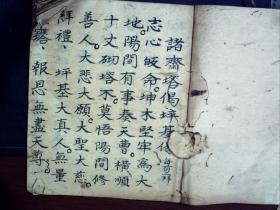 諸齋塔偈坪基偈
志心皈命。坤木堅牢為大
地。陽間有事奏天曹。橫順
十丈砌塔不莫悟陽間修
善人大悲大願。大聖大慈
鮮禮、坪基大真人無量
齋、報恩無盡天尊